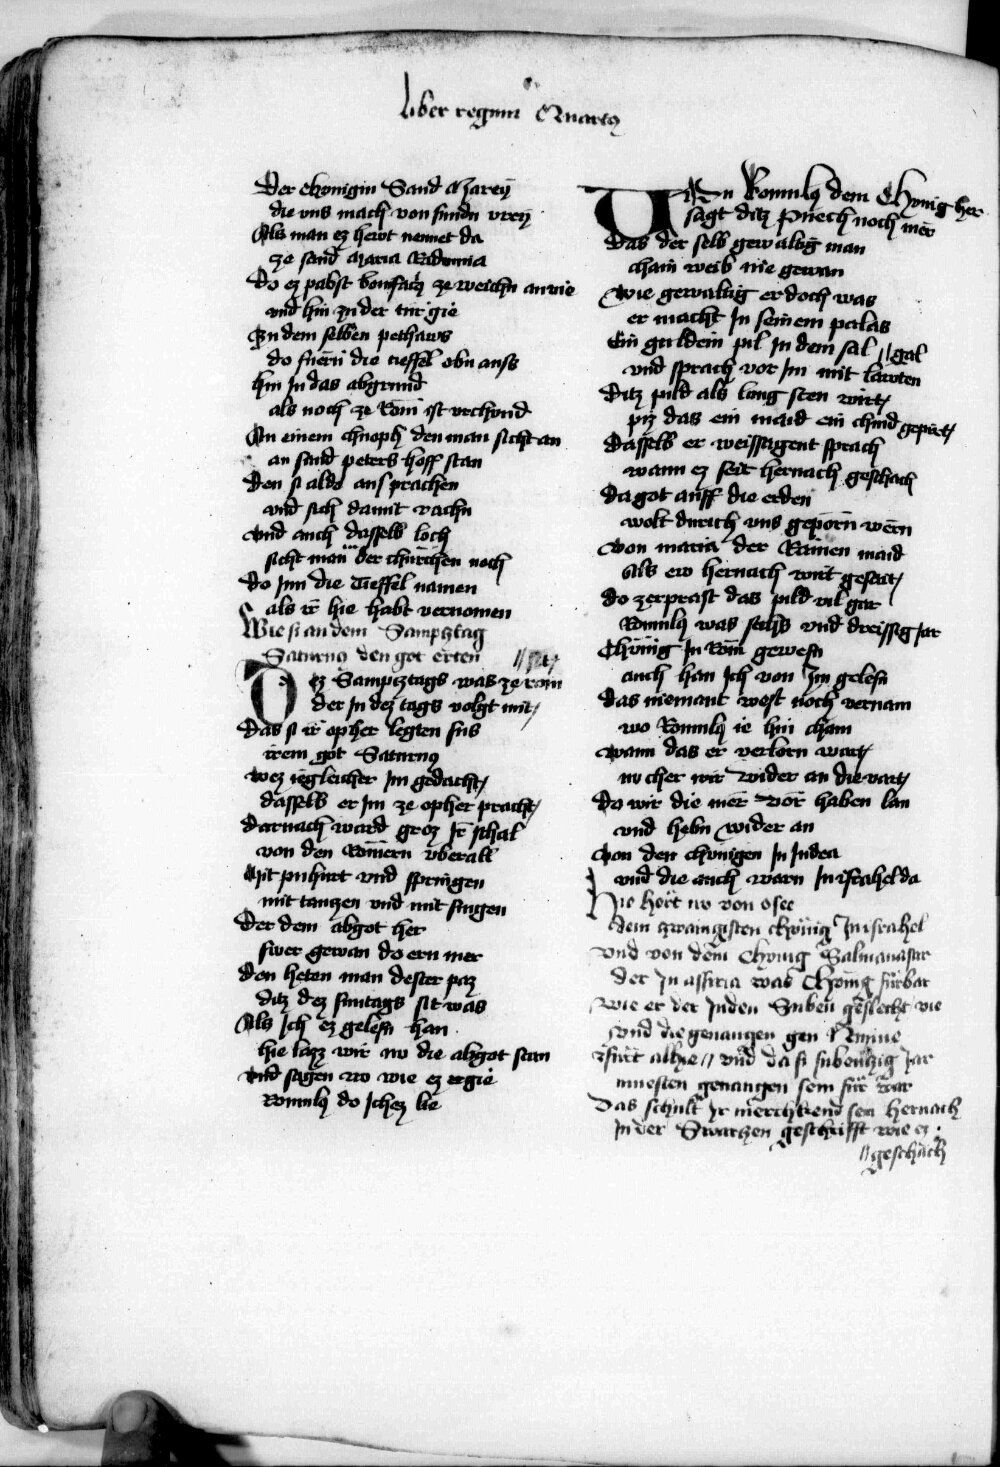 liber regum Quartus
Der chonigin Sand Marey
die vns mach von sundn vrey
Als man ez hewt nennet da
ze sand Maria Rodunda
Do ez pabst bonifacz ze weichn anvie
vnd hin zu der tür gie
Zu dem selben pethaws
do fuern die tieffel obn auss
hin In das abgrund
als noch ze Rom ist vrchond
An einem chnoph den man sicht an
an sand peters hoff stan
Den si aldo aus prachen
vnd sich damit rachn
Vnd auch dasselb loch
sicht man in der chirchen noch
Do Inn die Tieffel namen
als ir hie habt vernomen
Wie si an dem Sampztag
Saturnus den got erten
Dez Sampztags was ze rom // sit
der In dez tags volgt mit
Das si ir opher legten sus
irem got Saturnus
Wez iegleicher Im gedacht
dasselb er Im ze opher pracht
Darnach ward groz Ir schal
von den Römern vberall
Mit puhurt vnd springen
mit tanczen vnd mit singen
Der dem abgot her
swer gewan do ern mer
Den heten man dester paz
ditz dez suntags sit was
Als Ich ez gelesn han
hie lazz wir nu die abgot stan
Vnd sagen wo wie ez ergie
Romulus do Ich ez lie
Von Romulus dem Chonig her
sagt ditz Puech noch mer
Das der selb gewaltig man
chain weib nie gewan
Wie gewaltig er doch was
er macht In seinem palas
Ein guldein pil In dem sal
vnd sprach vor Im mit lawten // gal
Ditz pild als lang sten wirt
piz das ein maid ein chind gepirt
Dasselb er weissagent sprach
wann ez seit hernach geschach
Da got auff die erden
wolt durich vns geporn wern
Von maria der Rainen maid
Als ew hernach wirt gesait
Do zerprast das pild vil gar
Romulus was sechs vnd dreissig Jar
Chönig In Rom gewesn
auch han Ich von Im gelesn
Das niemant west noch vernam
wo Romulus ie hin cham
Wann das er verlorn wart
nu cher wir wider an die vart
Do wir die mer vor haben lan
vnd hebn wider an
Von den chonigen In Judea
vnd die auch warn In israhel da
Hie hört no von osee
dem zwainzigisten chönig In israhel
Vnd von dem Chonig Salmanasar
der In assiria was Chönig fürbar
Wie er der Juden Siben geslecht vie
vnd die genangen gen Niniue
fürt allhie // vnd da si sibenczig Jar
muesten genangen sein für war
Das schult Ir merchkend sein hernach
In der Swarczen geschrifft wie ez
// geschach